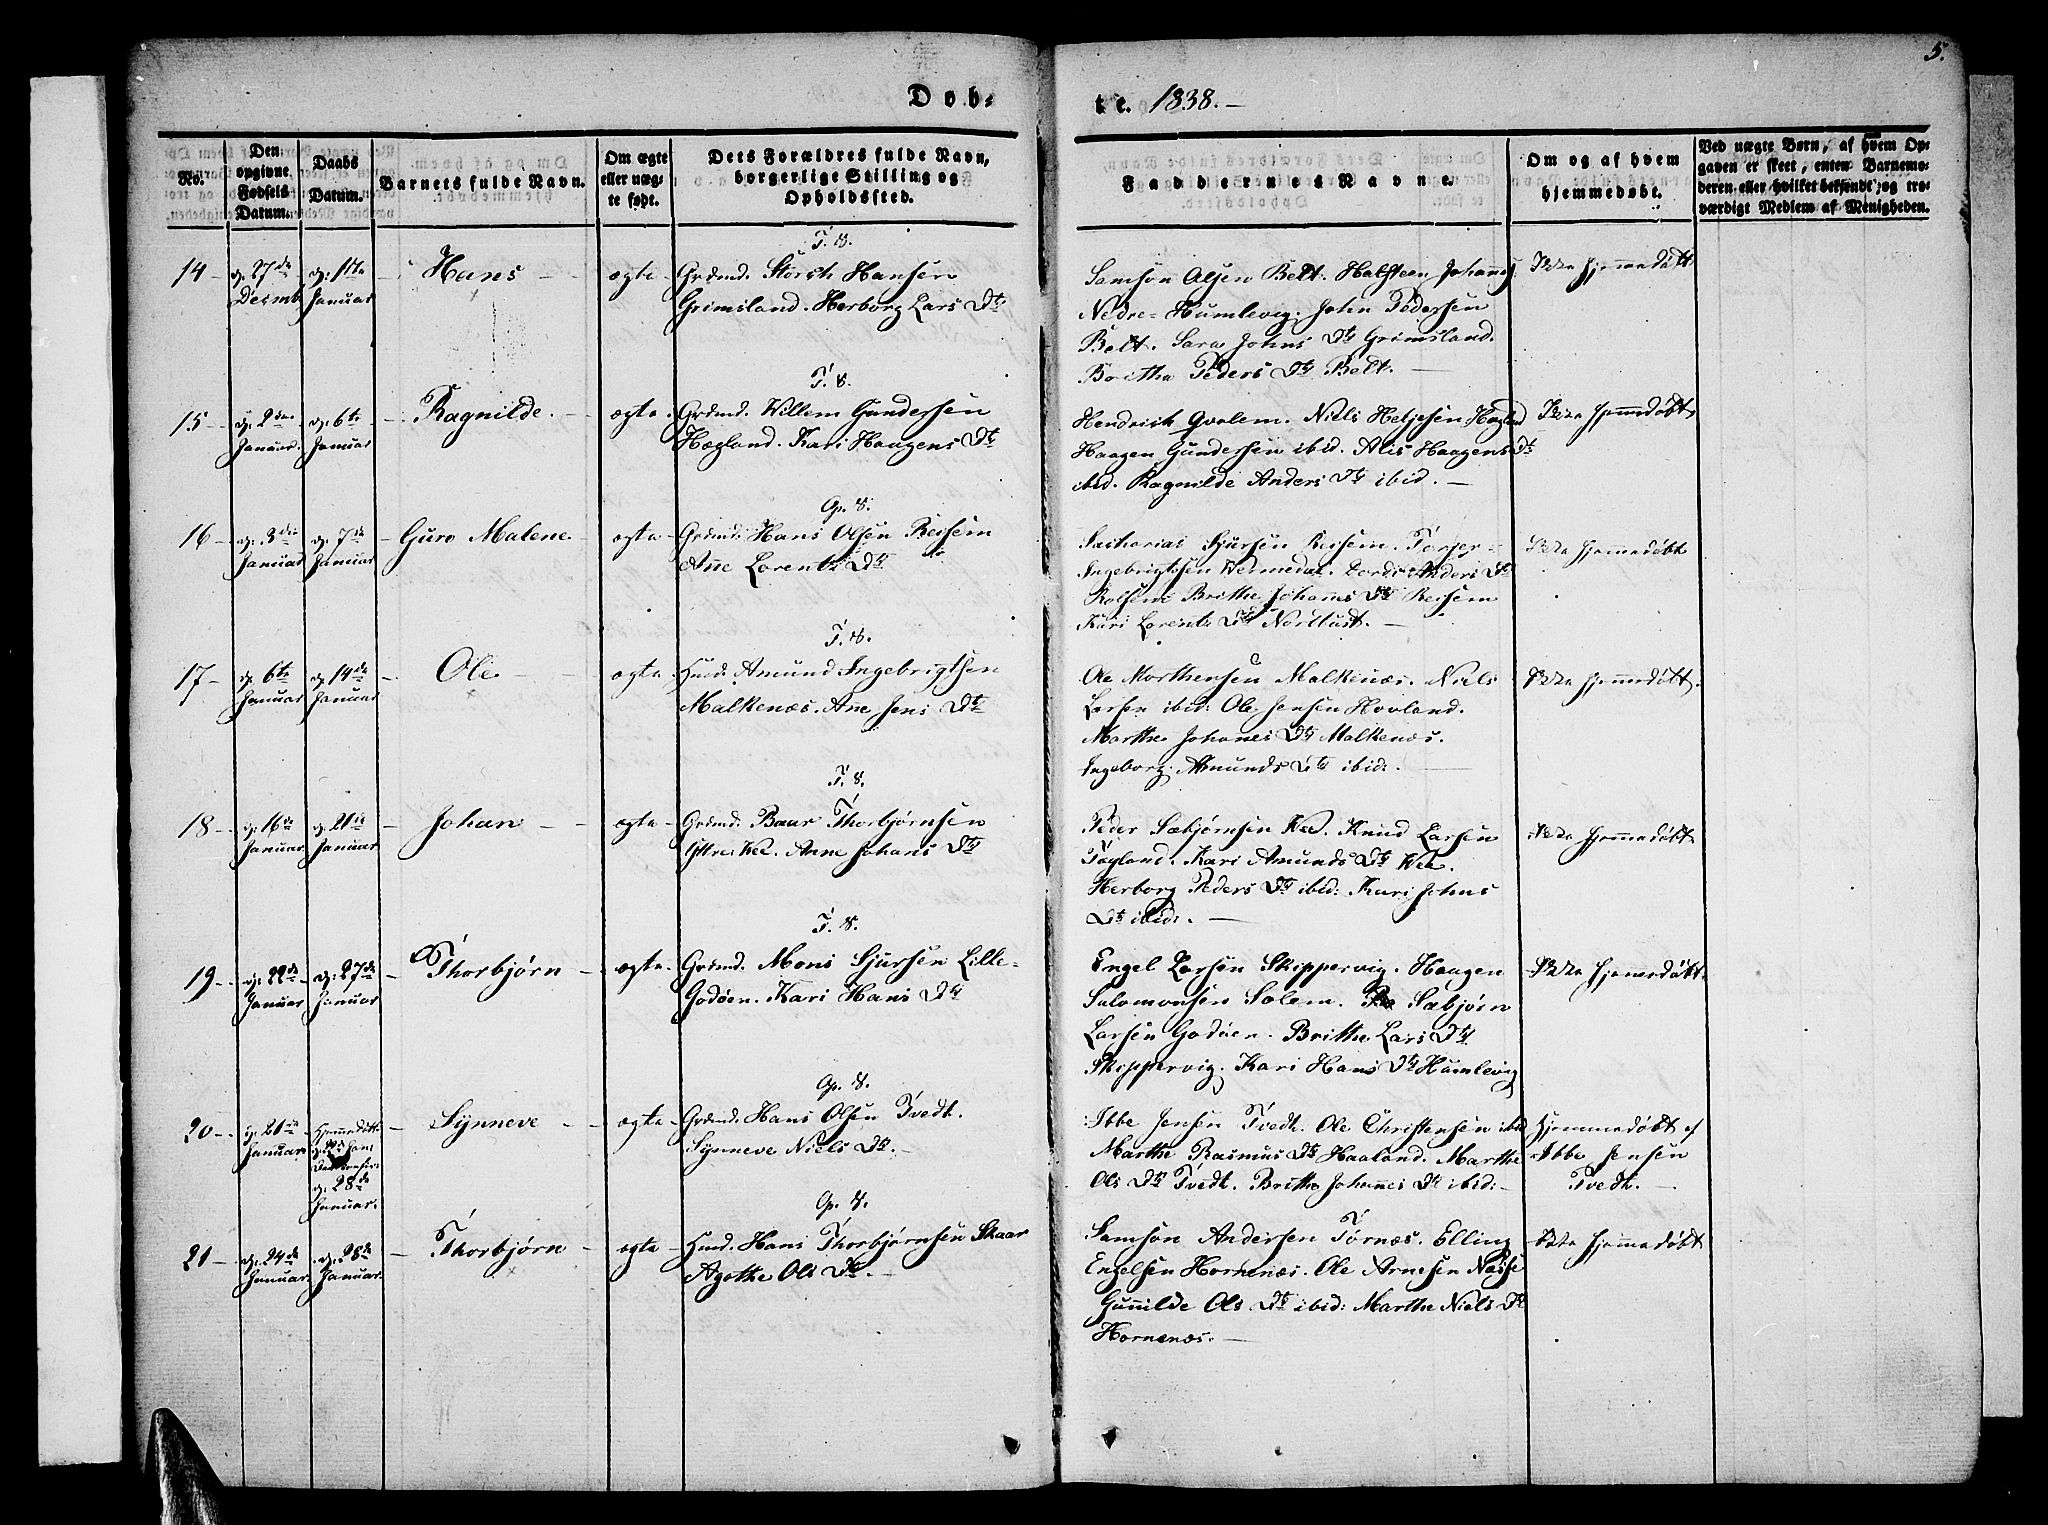 5.
Døb-
te. 1838.-
No.
Den
opgivne
Fødsels
Datum.
Daabs
Datum.
Barnets fulde Navn.
Om ægte
eller uæg-
te født.
Dets Forældres fulde Navn,
borgerlige Stilling og
Opholdssted.
Faddernes Navne.
Om og af hvem
hjemmedøbt.
Ved uægte Børn, af hvem Op-
gaven er skeet, enten Barnemo-
deren eller hvilket bekjendt og tro-
værdigt Medlem af Menigheden.
14 -
d. 27de
Decmb
d: 1ste
Januar
Hans
ægte
T. S.
Grdmd. Storch Hansen
Grimsland. Herborg Lars Dtr
Samson Olsen Belt. Halsteen Johannes
Nedre-Humlevig. John Pedersen
Belt. Sara Johns Dtr Grimsland.
Britha Peders Dtr Belt. -
Ikke hjemmedøbt
15 -
d. 2den
Januar.
d. 6te
Januar
Ragnilde.
ægte.
T. S.
Grdmd. Willem Gundersen
Hægland. Kari Haagens Dtr
Hendrich Qvalem. Niels Heljesen Hægland
Haagen Gundersen ibid. Alis Haagens Dtr
ibid. Ragnilde Anders Dtr ibid. -
Ikke hjemmedøbt
16 -
d: 3die
Januar
d. 7de
Januar
Guro Malene
ægte
Op. S.
Grdmd. Hans Olsen Reisem
Anne Lorents Dtr
Sacharias Sjursen Reisem. Torger
Ingebrigtsen Wermedal. Anders Dtr
Rolsem Brithe Johannes Dtr Reisem
Kari Lorents Dtr -
Ikke hjemmedøbt
17 -
d. 6te
Januar
d. 14de
Januar
Ole
ægte
T. S.
Hmd. Amund Ingebrigtsen
Malkenæs. Anne Jens Dtr
Ole Morthensen Malkenæs. Niels
Larsen ibid: Ole Jensen Hovland.
Marthe Johanes Dtr Malkenæs.
Ingeborg Amunds Dtr ibid:
Ikke hjemmedøbt.
18 -
d: 16de
Januar
d. 21de
Januar
Johan
ægte
T. S.
Grdmd. Baar Thorbjørnsen
Yttre Vee. Anne Johans Dtr
Peder Sæbjørnsen Vee. Knud Larsen
Tøgland. Kari Amunds Dtr Vee.
Herborg Peders Dtr ibid: Kari Johns
Dtr ibid:
Ikke hjemmedøbt
19 -
d: 22de
Januar
d. 27de
Januar
Thorbjørn
ægte
T. S.
Grdmd. Mons Sjursen Lille-
Godøen. Kari Hans Dtr
Engel Larsen Skippervig. Haagen
Salomonsen Solem. Sæbjørn
Larsen Godøen. Brithe Lars Dtr
Skippervig. Kari Hans Dtr Humlevig
Ikke hjemmedøbt
20 -
d: 21de
Januar
Hjemmedøbt
d. 28de
Januar.
Synneve
ægte
Op. S.
Grdmd. Hans Olsen Tvedt.
Synneve Niels Dtr. -
Ibbe Jensen Tvedt. Ole Christensen ibid
Marthe Rasmus Dtr Haaland. Marthe
Ols Dtr Tvedt. Brithe Johannes Dtr ibid: -
Hjemmedøbt af
Ibbe Jensen
Tvedt. -
21 -
d. 24de
Januar
d. 28de
Januar
Thorbjørn
ægte
Op. S.
Hmd. Hans Thorbjørnsen Skaar
Agathe Ols Dtr. -
Samson Andersen Tornæs. Elling
Engelsen Hornenæs. Ole Arnesen Næsse
Gunnilde Ols Dtr ibid: Marthe Niels Dtr
Hornenæs. -
Ikke hjemmedøbt